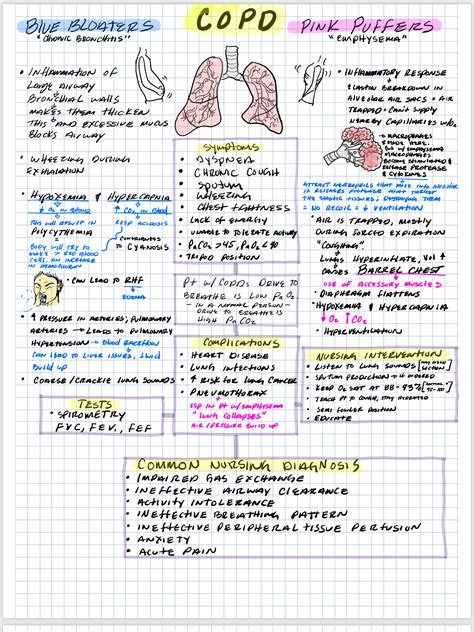 COPD
BLUE BLOATERS
"CHRONIC BRONCHITIS"
• INFLAMMATION OF
LARGE AIRWAY
BRONCHIAL WALLS
MAKES THEM THICKEN
THIS AND EXCESSIVE MUCUS
BLOCKS AIRWAY
• WHEEZING DURING
EXHALATION
• HYPOXEMIA & HYPERCAPNIA
↓ O₂ IN BLOOD
↑ CO₂ IN BLOOD
THIS WILL RESULT IN
POLYCYTHEMIA
=
BODY WILL TRY TO
MAKE ↑ RED BLOOD
CELLS, AN INCREASE
IN HEMOGLOBIN
RESP ACIDOSIS
CONTRIBUTES
TO CYANOSIS
• CAN LEAD TO RHF
EDEMA
• ↑ PRESSURE IN ARTERIES; PULMONARY
ARTERIES → LEADS TO PULMONARY
HYPERTENSION → blood BACKFLOW
CAN LEAD TO LIVER ISSUES, FLUID
BUILD UP
• COARSE/CRACKLE LUNG SOUNDS
TESTS
• SPIROMETRY
FVC, FEV₁, FEF
SYMPTOMS
• DYSPNEA
• CHRONIC COUGH
• SPUTUM
• WHEEZING
• CHEST TIGHTNESS
• LACK OF ENERGY
• UNABLE TO TOLERATE ACTIVITY
• PaCO₂ >45, PaO₂ <90
• TRIPOD POSITION
PT W/ COPDs DRIVE TO
BREATHE IS LOW PaO₂.
IN A NORMAL PERSON -
DRIVE TO BREATHE IS
HIGH PaCO₂
COMPLICATIONS
• HEART DISEASE
• LUNG INFECTIONS
• ↑ RISK FOR LUNG CANCER
• PNEUMOTHORAX
ESP IN PT W/ EMPHYSEMA
"LUNG COLLAPSES"
AIR/PRESSURE BUILD UP
PINK PUFFERS
"EMPHYSEMA"
• INFLAMMATORY RESPONSE
↓
ELASTIN BREAKDOWN IN
ALVEOLAR AIR SACS + AIR
TRAPPED = CAN'T SUPPLY
NEARBY CAPILLARIES W/O₂
MACROPHAGES
RESIDE HERE.
BUT W/ EMPHYSEMA
MACROPHAGES
BECOME STIMULATED &
RELEASE PROTEASE
& CYTOKINES
ATTRACT NEUTROPHILS THAT MOVE INTO ALVEOLI
IT RELEASES PROTEASE THAT TARGET
THE ELASTIC TISSUES; DESTROYING THEM
= NO RECOIL = ↓ VENTILATION
• AIR IS TRAPPED, MOSTLY
DURING FORCED EXPIRATION
"COUGHING"
↓
LUNGS HYPERINFLATE, VOL ↑
CAUSES BARREL CHEST
• USE OF ACCESSORY MUSCLES
• DIAPHRAGM FLATTENS
• HYPOXEMIA & HYPERCAPNIA
↓ O₂ ↑ CO₂
• HYPERVENTILATION
NURSING INTERVENTION
• LISTEN TO LUNG SOUNDS [MAY NEED SUCTION]
• SPUTUM PRODUCTION → IF ORDERED
• KEEP O₂ SAT @ 88-93% [NORMAL 95-100]
• TEACH PT TO COUGH, STAY HYDRATED
• SEMI FOWLER POSITION
• EDUCATE
COMMON NURSING DIAGNOSIS
• IMPAIRED GAS EXCHANGE
• INEFFECTIVE AIRWAY CLEARANCE
• ACTIVITY INTOLERANCE
• INEFFECTIVE BREATHING PATTERN
• INEFFECTIVE PERIPHERAL TISSUE PERFUSION
• ANXIETY
• ACUTE PAIN